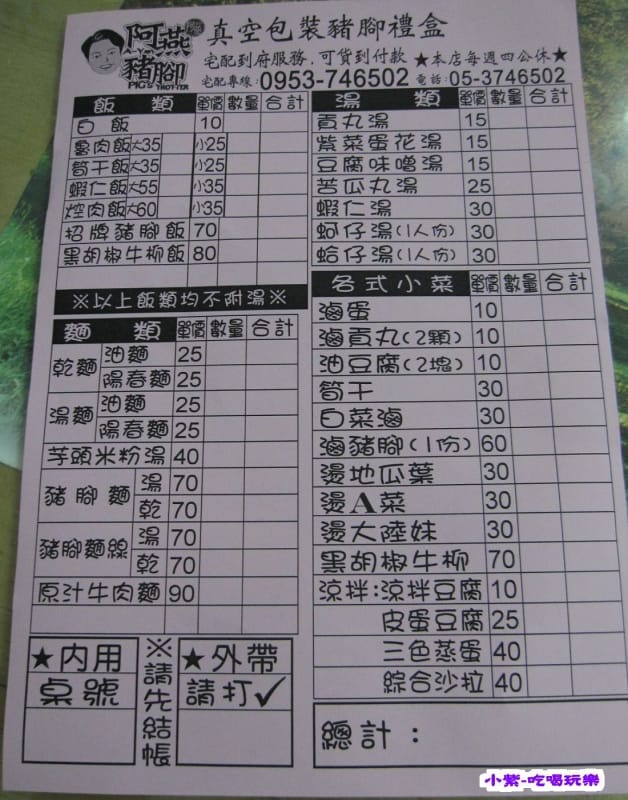 阿燕
豬腳
PIG'S TROTTER
真空包裝豬腳禮盒
宅配到府服務.可貨到付款 ★本店每週四公休★
宅配專線:0953-746502 電話:05-3746502
飯類 單價 數量 合計
白飯 10
魯肉飯 大35 小25
筍干飯 大35 小25
蝦仁飯 大55 小35
焢肉飯 大60 小35
招牌豬腳飯 70
黑胡椒牛柳飯 80
※以上飯類均不附湯※
麵類 單價 數量 合計
乾麵 油麵 25
陽春麵 25
湯麵 油麵 25
陽春麵 25
芋頭米粉湯 40
豬腳麵 湯 70
乾 70
豬腳麵線 湯 70
乾 70
原汁牛肉麵 90
★內用
桌號
※請先結帳
★外帶
請打✓
湯類 單價 數量 合計
貢丸湯 15
紫菜蛋花湯 15
豆腐味噌湯 15
苦瓜丸湯 25
蝦仁湯 30
蚵仔湯(1人份) 30
蛤仔湯(1人份) 30
各式小菜 單價 數量 合計
滷蛋 10
滷貢丸(2顆) 10
油豆腐(2塊) 10
筍干 30
白菜滷 30
滷豬腳(1份) 60
燙地瓜葉 30
燙A菜 30
燙大陸妹 30
黑胡椒牛柳 70
涼拌:涼拌豆腐 10
皮蛋豆腐 25
三色蒸蛋 40
綜合沙拉 40
總計:
小紫-吃喝玩樂